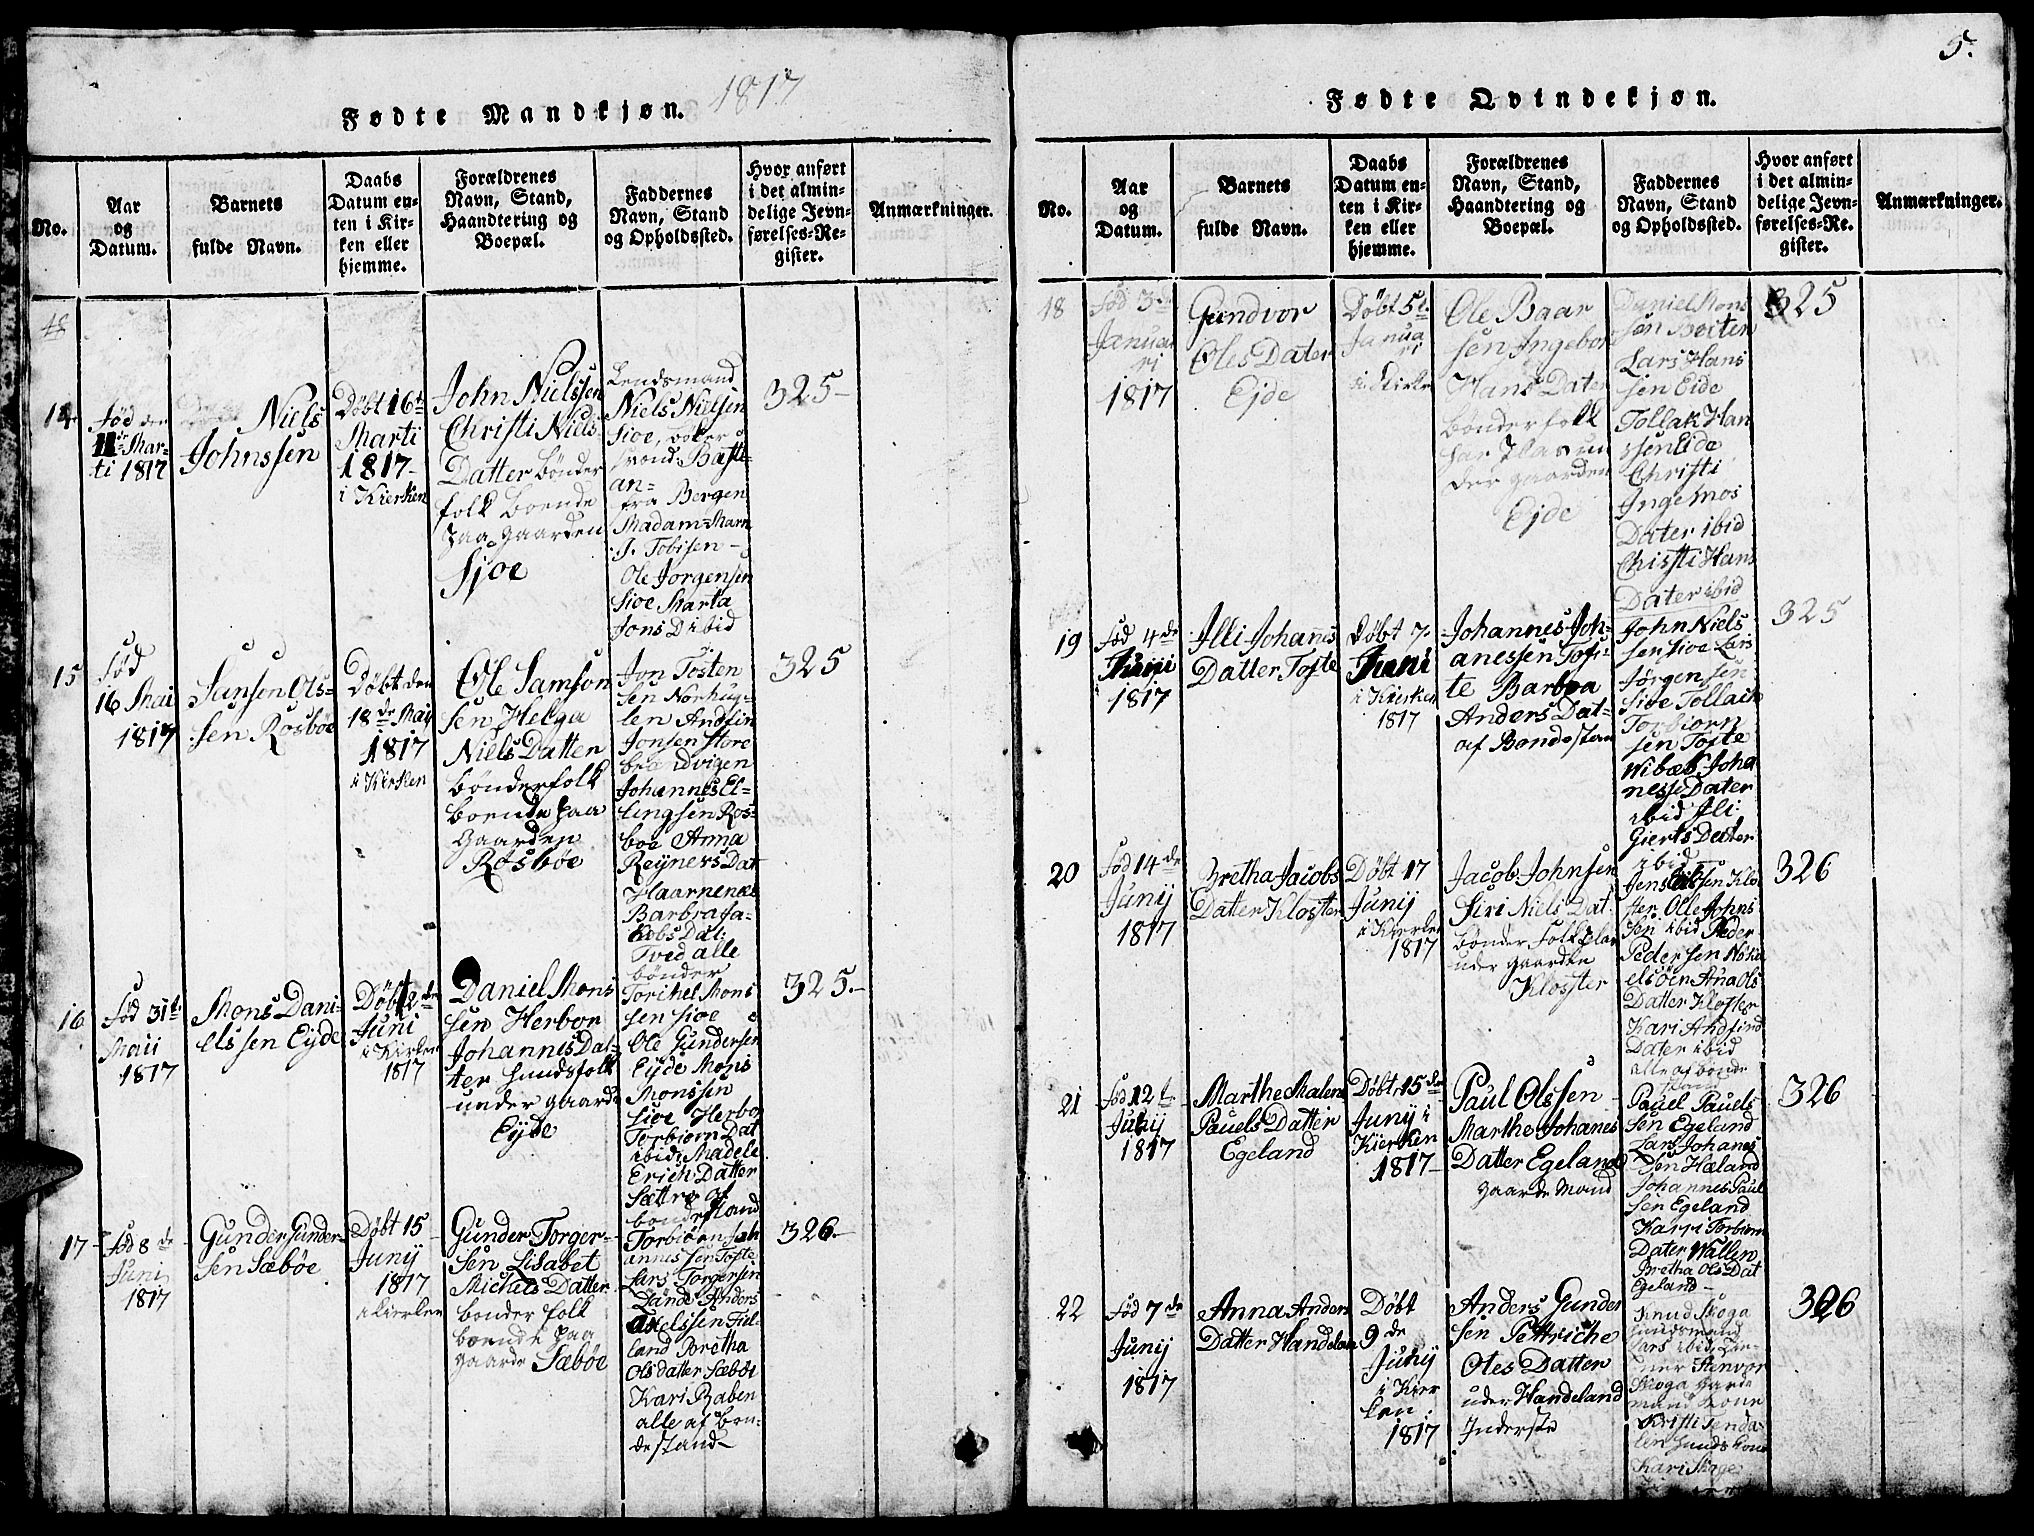 1817
Fødte Mandkjøn.
No.
Aar
og
Datum.
Barnets
fulde Navn.
Daabs
Datum en-
ten i Kir-
ken eller
hjemme.
Forældrenes
Navn, Stand,
Haandtering og
Boepæl.
Faddernes
Navn, Stand
og Opholdssted.
Hvor anført
i det almin-
delige Jevn-
førelses-Re-
gister.
Anmærkninger.
14
Fød den
11te Mar-
ti 1817
Niels
Johnssen
Døbt 16te
Marti
1817
i Kierken
John Nielssen
Christi Niels-
Datter Bønder
folk Boende
paa Gaarden
Sjoe
Lendsmand
Niels Nielsen
Sioe, 
svend Bastle-
an-
fra Bergen
Madam Marn
J. Tobisen -
Ole Jorgensen
Sioe Marta
Jons D ibid
325-
15
Fød
16 Mai
1817
Samsen Ols-
sen Rosbøe
Døbt den
18de Maij
1817
i Kirken
Ole Samson
sen Helga
Niels Datter
Bønderfolk
Boende paa
Gaarden
Røsbøe
Jon Tosten
sen Norhug-
len Andfin
Jonsen store
brandvigen
Johannes El-
lingsen Ros-
boe Anna
Reijners Dat
Haarnenæs
Barbra Ja-
kobs Dat:
Tved alle
bønder
325
16
Fød 31te
Maii
1817
Mons Dani-
elssen Eyde
Døbt 2den
Juni
i Kirken
1817
Daniel Mons
sen Herbor
Johannes Dat-
ter Huusfolk
under gaarde
Eyde
Torikel Mons
sen Sioe
Ole Gundersen
Eyde Mons
Monssen
Sioe Herbor
Torbiorn Dat
ibid Madele
Erich Datter
Sættre af
bondestand
325.-
17
Fød 8de
Juni
1817
Gunder Gunder-
sen Sæbøe
Døbt 15
Junij
1817
i Kierken
Gunder Torger-
sen Lisabet
Michels Datter
bonder folk
boende paa
gaarde Sæbøe
Torbiorn Joh
annessen Tofte
Lars Torgersen
Lande Anders
Axelssen Fiel-
land Bretha
Olsdatter Sæbøe
Kari Raben
alle af bon-
destand-
326.-
5.
Fødte Qvindekjøn.
No.
Aar
og
Datum.
Barnets
fulde Navn.
Daabs
Datum en-
ten i Kir-
ken eller
hjemme.
Forældrenes
Navn, Stand,
Haandtering og
Boepæl.
Faddernes
Navn, Stand
og Opholdssted.
Hvor anført
i det almin-
delige Jevn-
førelses-Re-
gister.
Anmærkninger.
18
Fød 3de
Januar
ri
1817
Gundvor
Oles Dater
Ejde
Døbt 5te
Janua
ri
i Kirke
Ole Baar
sen Ingebor
Hans Dater
bønderfolk
har Plas un
der gaarden
Ejde
Daniel Mons
sen
Lars Hans
sen Eide
Tollak Han
ssen Eide
Christi
Ingemos
Dater ibid
Christi Hans
Dater ibid
325
19
Fød 4de
Juni
1817
Illi Johanes
Datter Tofte
Døbt 7.
Juni
i Kirken
1817
Johannes Joh-
anessen Tof-
te Barbra
Anders Dat-
af Bondestan
John Niels
sen Sioe Lars
Jørgensen
Sioe Tollach
Torbiorn
sen Tofte
Wibæk Joha
nesse Dater
ibid Ili
Gierts Datter
ibid
325
20
Fød 14de
Junij
1817
Bretha Jacobs
Datter Kloster
Døbt 17
Junij
i Kierken
1817
Jacob Johnsen
Siri Niels Dat-
bønder Folk Plas
under gaarden
Kloster
Jens Eliassen Klo-
ster Olle Johns
sen ibid Peder
Pedersen 
elsøen Ana Ols
Datter Kloster
Kari Andfind
Dater ibid
alle af bonde
stand
326
21
Fød 12te
Junij
1817
Marthe Malena
Pauels Datter
Egeland
Døbt 15de
Junij i
Kierken
1817-
Paul Olssen
Marthe Johanes
Datter Egeland
gaarde Mand
Pauel Pauels
sen Egeland
Lars Johanes
sen Hæland
Johannes Paul
sen Egeland
Karri Torbiorn
Dater Wallen
Bretha Ols Dat
Egeland-
326
22
Fød 7de
Junij
1817
Anna Anders
Datter Handelan
Døbt
9de
Junij
i Kier
ken
1817
Anders Gunder
sen Pettriche
Oles Datter
under Handeland
Inderste
Knud Skoga
huusmand
Lars ibid 
Stenvor
Skoga Garde
mand Kone
Kristi Tenda-
len huuds Kone
Kari Skoge
326